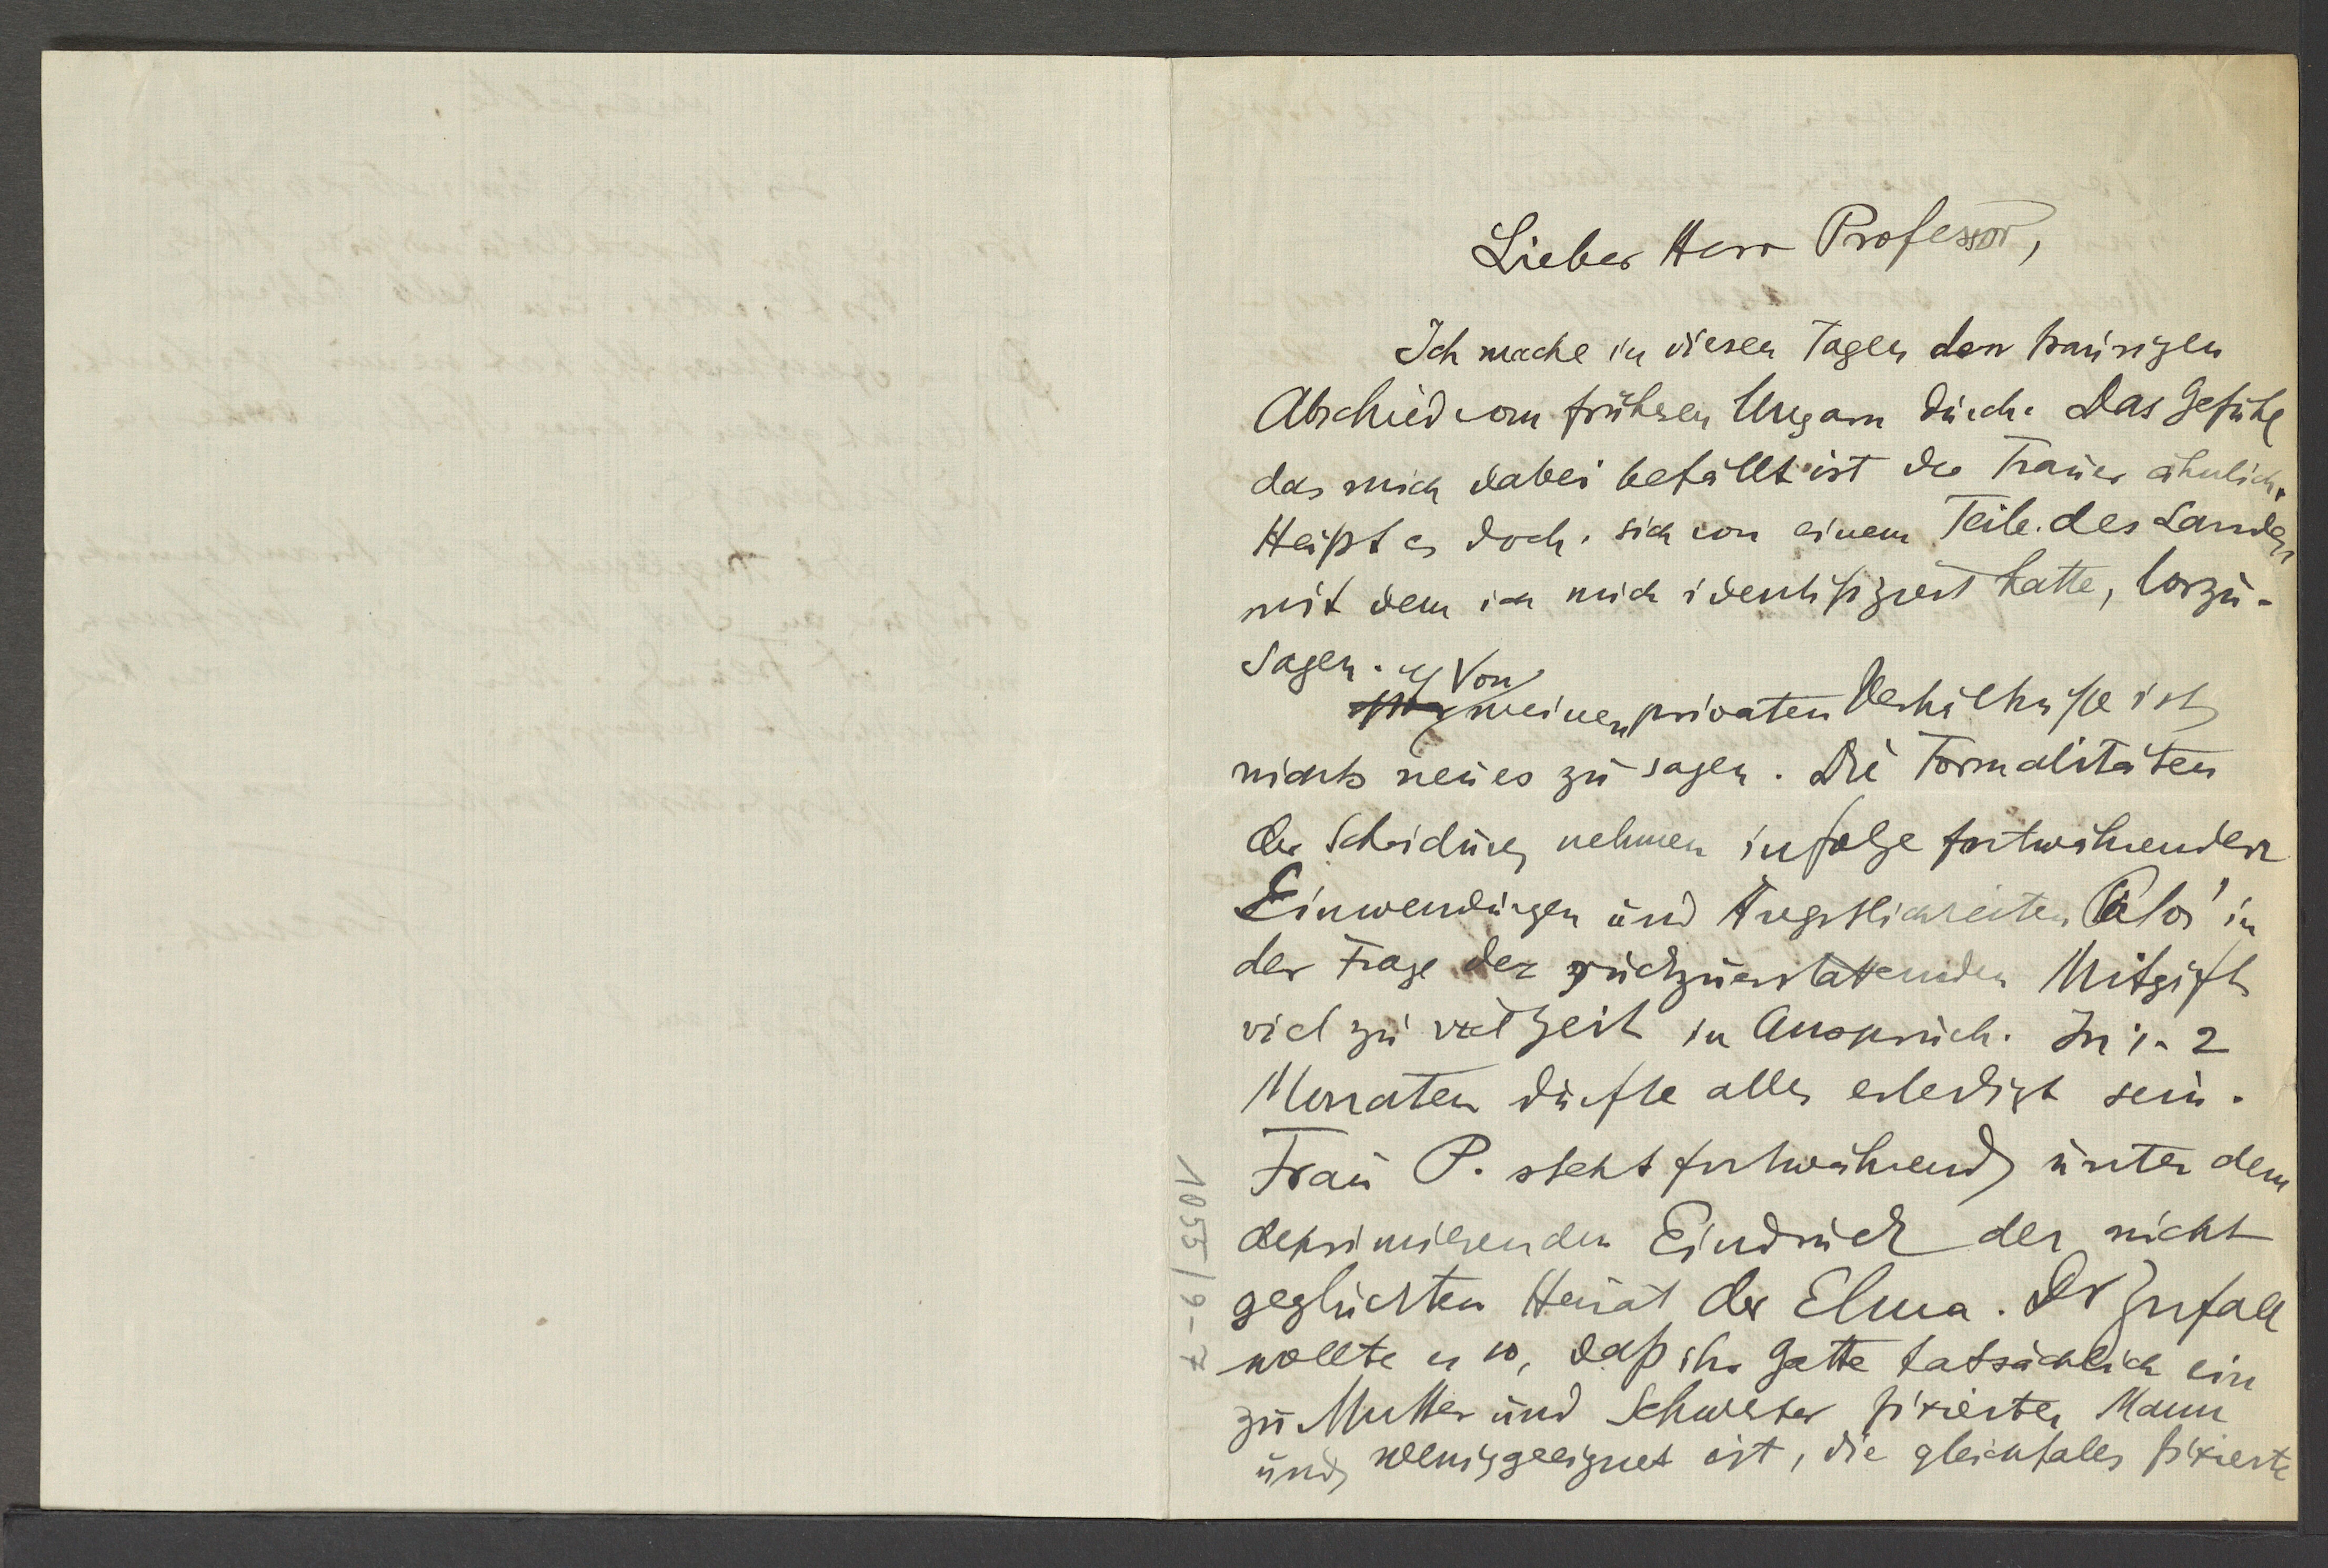 Lieber Herr Professor,
Ich mache in diesen Tagen den traurigen
Abschied vom frühern Ungarn durch. Das Gefühl
das mich dabei befällt ist der Trauer ähnlich.
Heißt es doch, sich von einem Teile des Landes
mit dem ich mich identifiziert hatte, loszu-
sagen.
Von
meinen privaten Verhältnisse ist
nichts neues zu sagen. Die Formalitäten
der Scheidung nehmen infolge fortwährender
Einwendungen und Ängstlichkeiten Pálos' in
der Frage der rückzuerstattenden Mitgift
viel zu viel Zeit in Anspruch. In 1-2
Monaten dürfte alles erledigt sein.
Frau P. steht fortwährend unter dem
deprimierenden Eindruck der nicht
geglückten Heirat der Elma. Der Zufall
wollte es so, daß ihr Gatte tatsächlich ein
zu Mutter und Schwester fixierter Mann
und wenig geeignet ist, die gleichfalls fixierte
1055/9-7